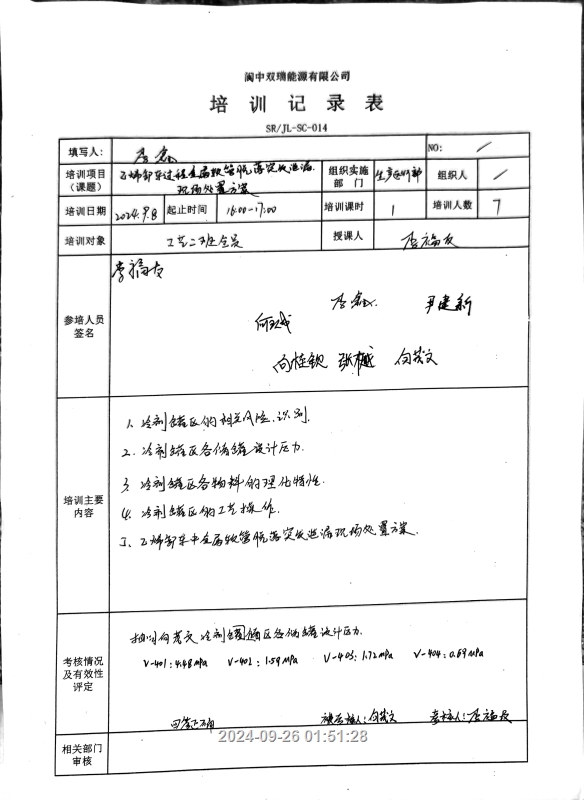 阆中双瑞能源有限公司
培训记录表
SR/JL-SC-014
填写人： 李鑫 NO: /
培训项目（课题） 乙烯卸车过程金属软管脱落突发泄漏现场处置方案 组织实施部门 生产运行部 组织人 /
培训日期 2024.9.8 起止时间 16:00-17:00 培训课时 1 培训人数 7
培训对象 工艺二班全员 授课人 李福友
参培人员签名
李福友
李鑫 尹建新
何玉成
向桂钦 张樾 向茂文
培训主要内容
1、冷剂罐区的相关风险识别.
2、冷剂罐区各储罐设计压力.
3、冷剂罐区各物料的理化特性.
4、冷剂罐区的工艺操作.
5、乙烯卸车中金属软管脱落突发泄漏现场处置方案.
考核情况及有效性评定
抽问向茂文冷剂罐区各储罐设计压力.
V-401：4.48MPa V-402：1.59MPa V-403：1.72MPa V-404：0.69MPa
回答正确 被考核人：向茂文 考核人：李福友
2024-09-26 01:51:28
相关部门审核